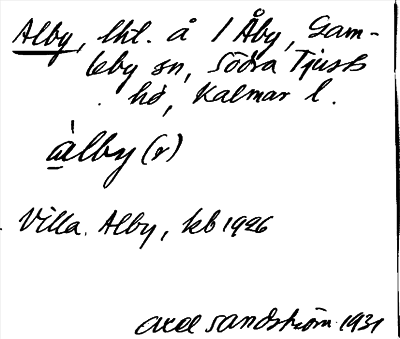 Alby, lht. å 1 Åby, Gam-
leby sn, Södra Tjusts
hd, Kalmar l.
àlby (r)
Villa. Alby, kb 1926
Axel Sandström 1931